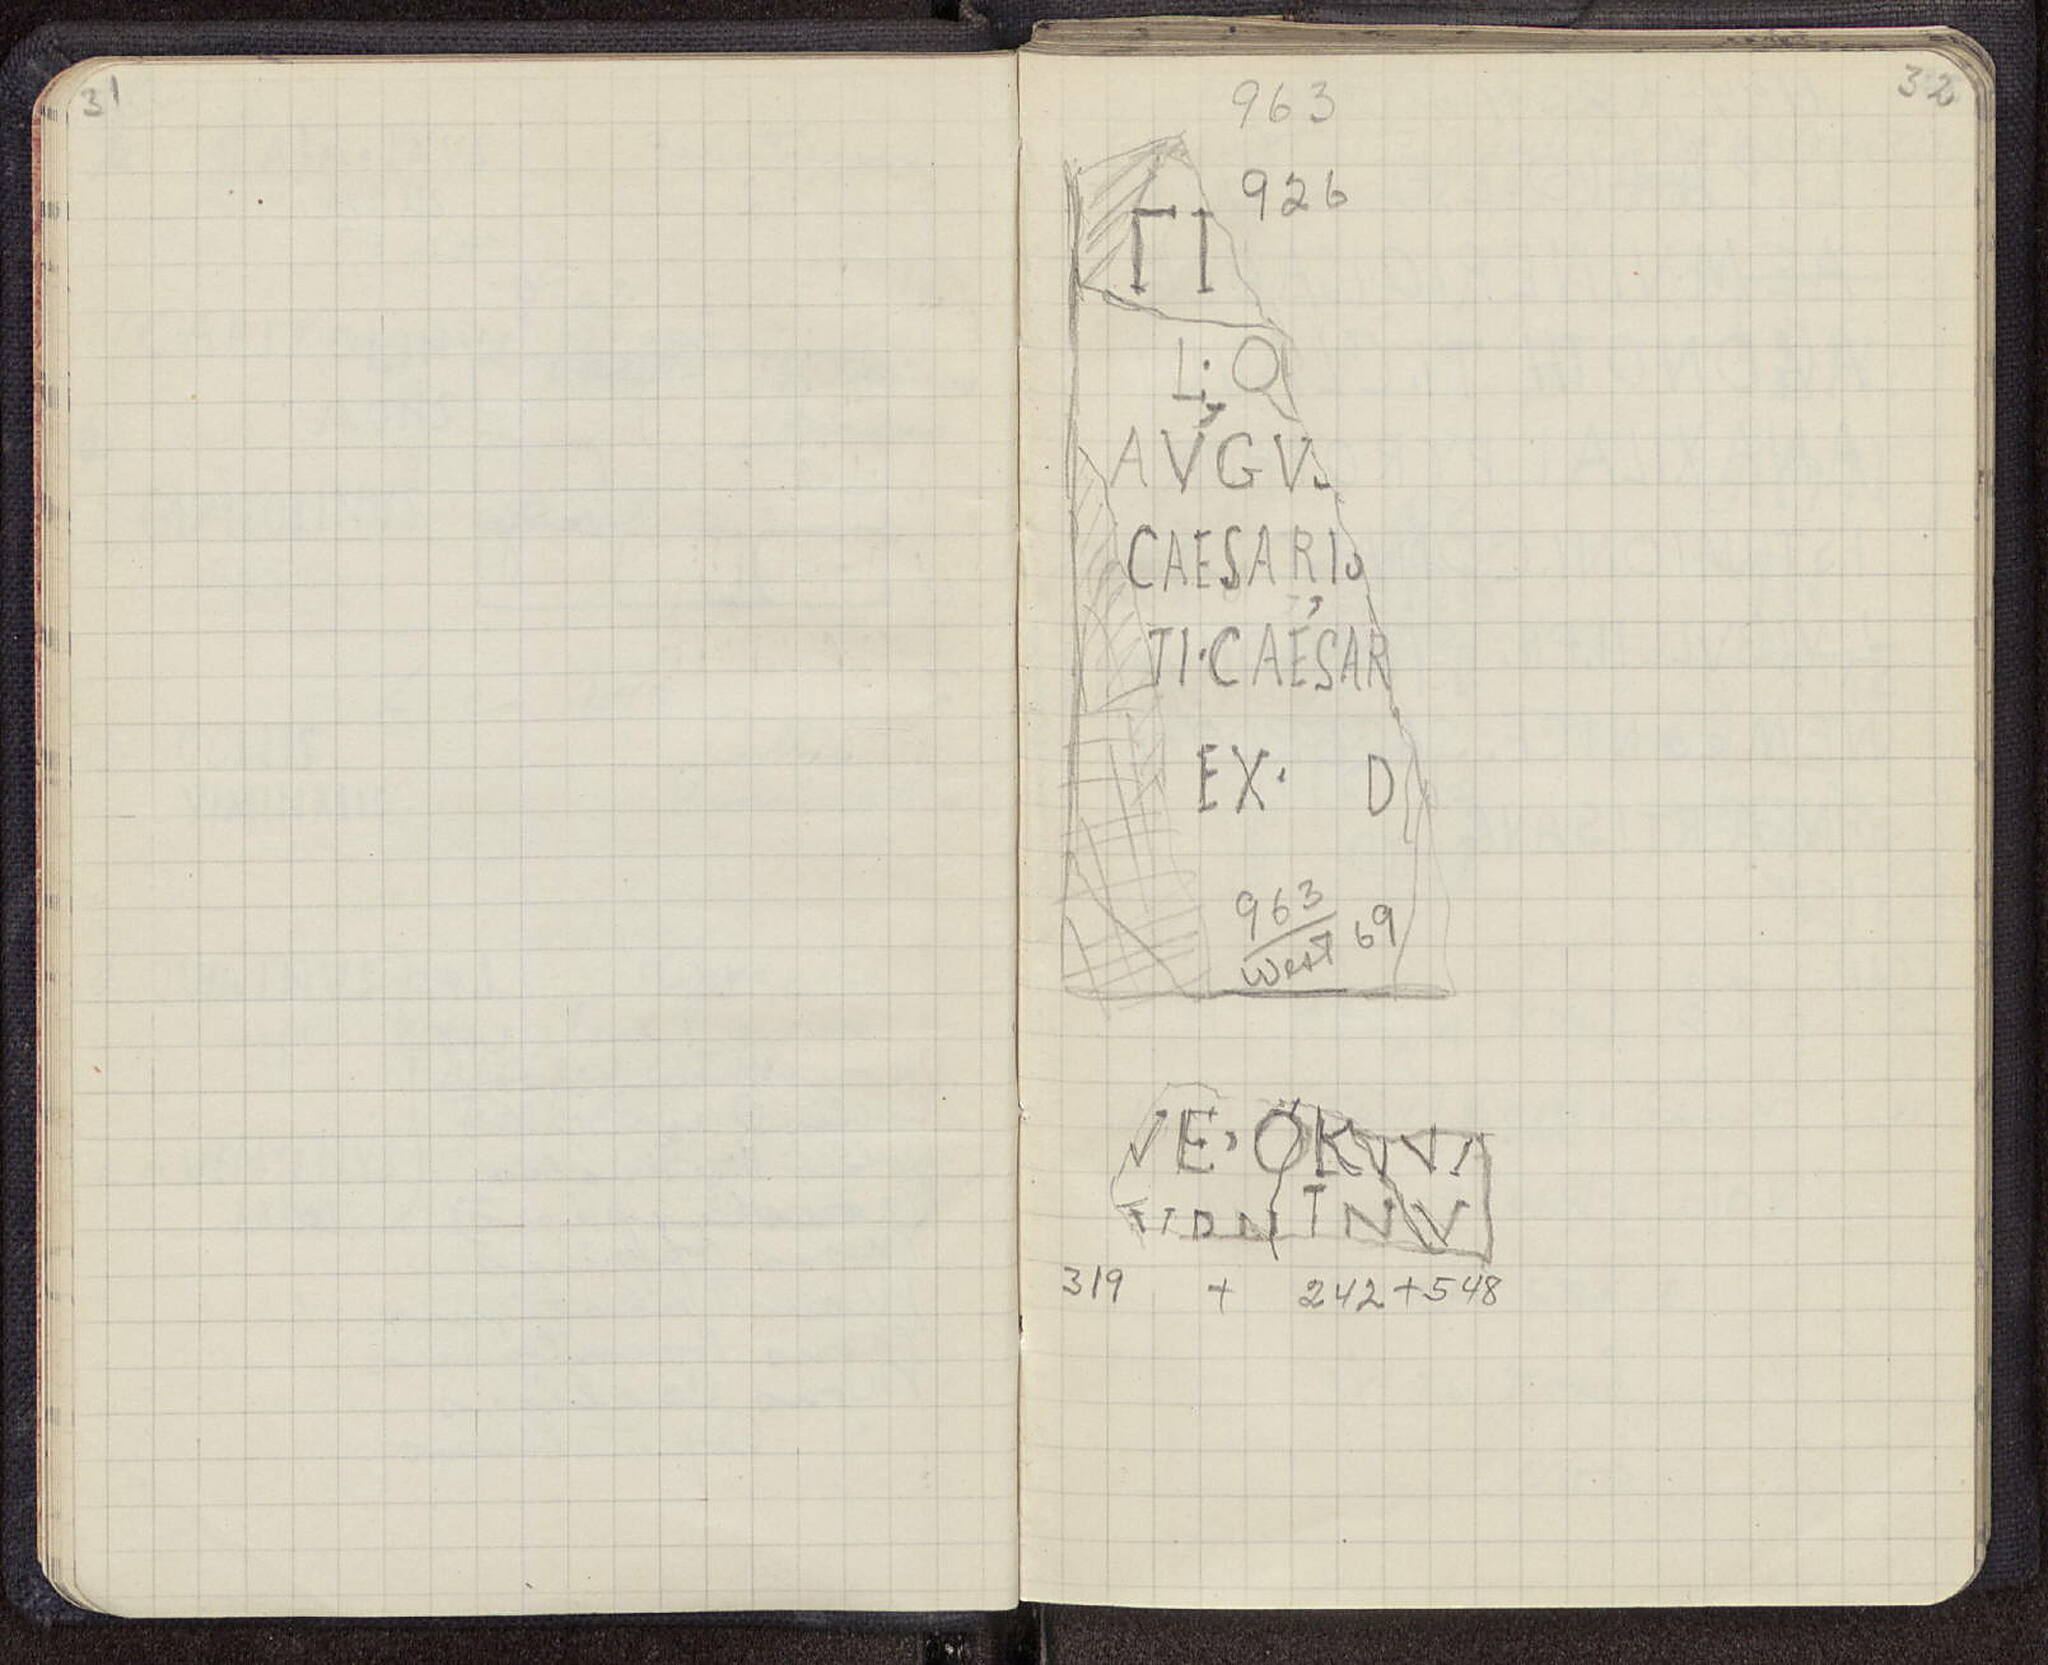 31
32
963
926
TI
L·Q
AVGVS
CAESARIS
TI·CAESAR
EX· D
963
West 69
VE·OK
319 + 242+548